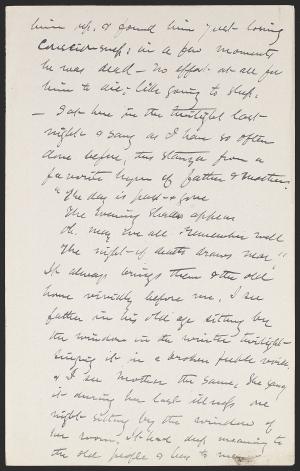 him up, & found him just losing
consciousness; in a few moments
he was dead — no effort at all for
him to die; like going to sleep.
— I sat here in the twilight last
night & sang as I have so often
done before, this stanza from a
favorite hymn of father & mother.
"The day is past & gone
The Evening Shades appear
Oh may we all remember well
The night of death draws near"
It always brings them & the old
home vividly before me. I see
father in his old age sitting by
the window in the winter twilight
singing it in a broken feeble voice.
& I see mother the same. She sang
it during her last illness one
night sitting by the window of
her room. It had deep meaning to
the old people & has to me